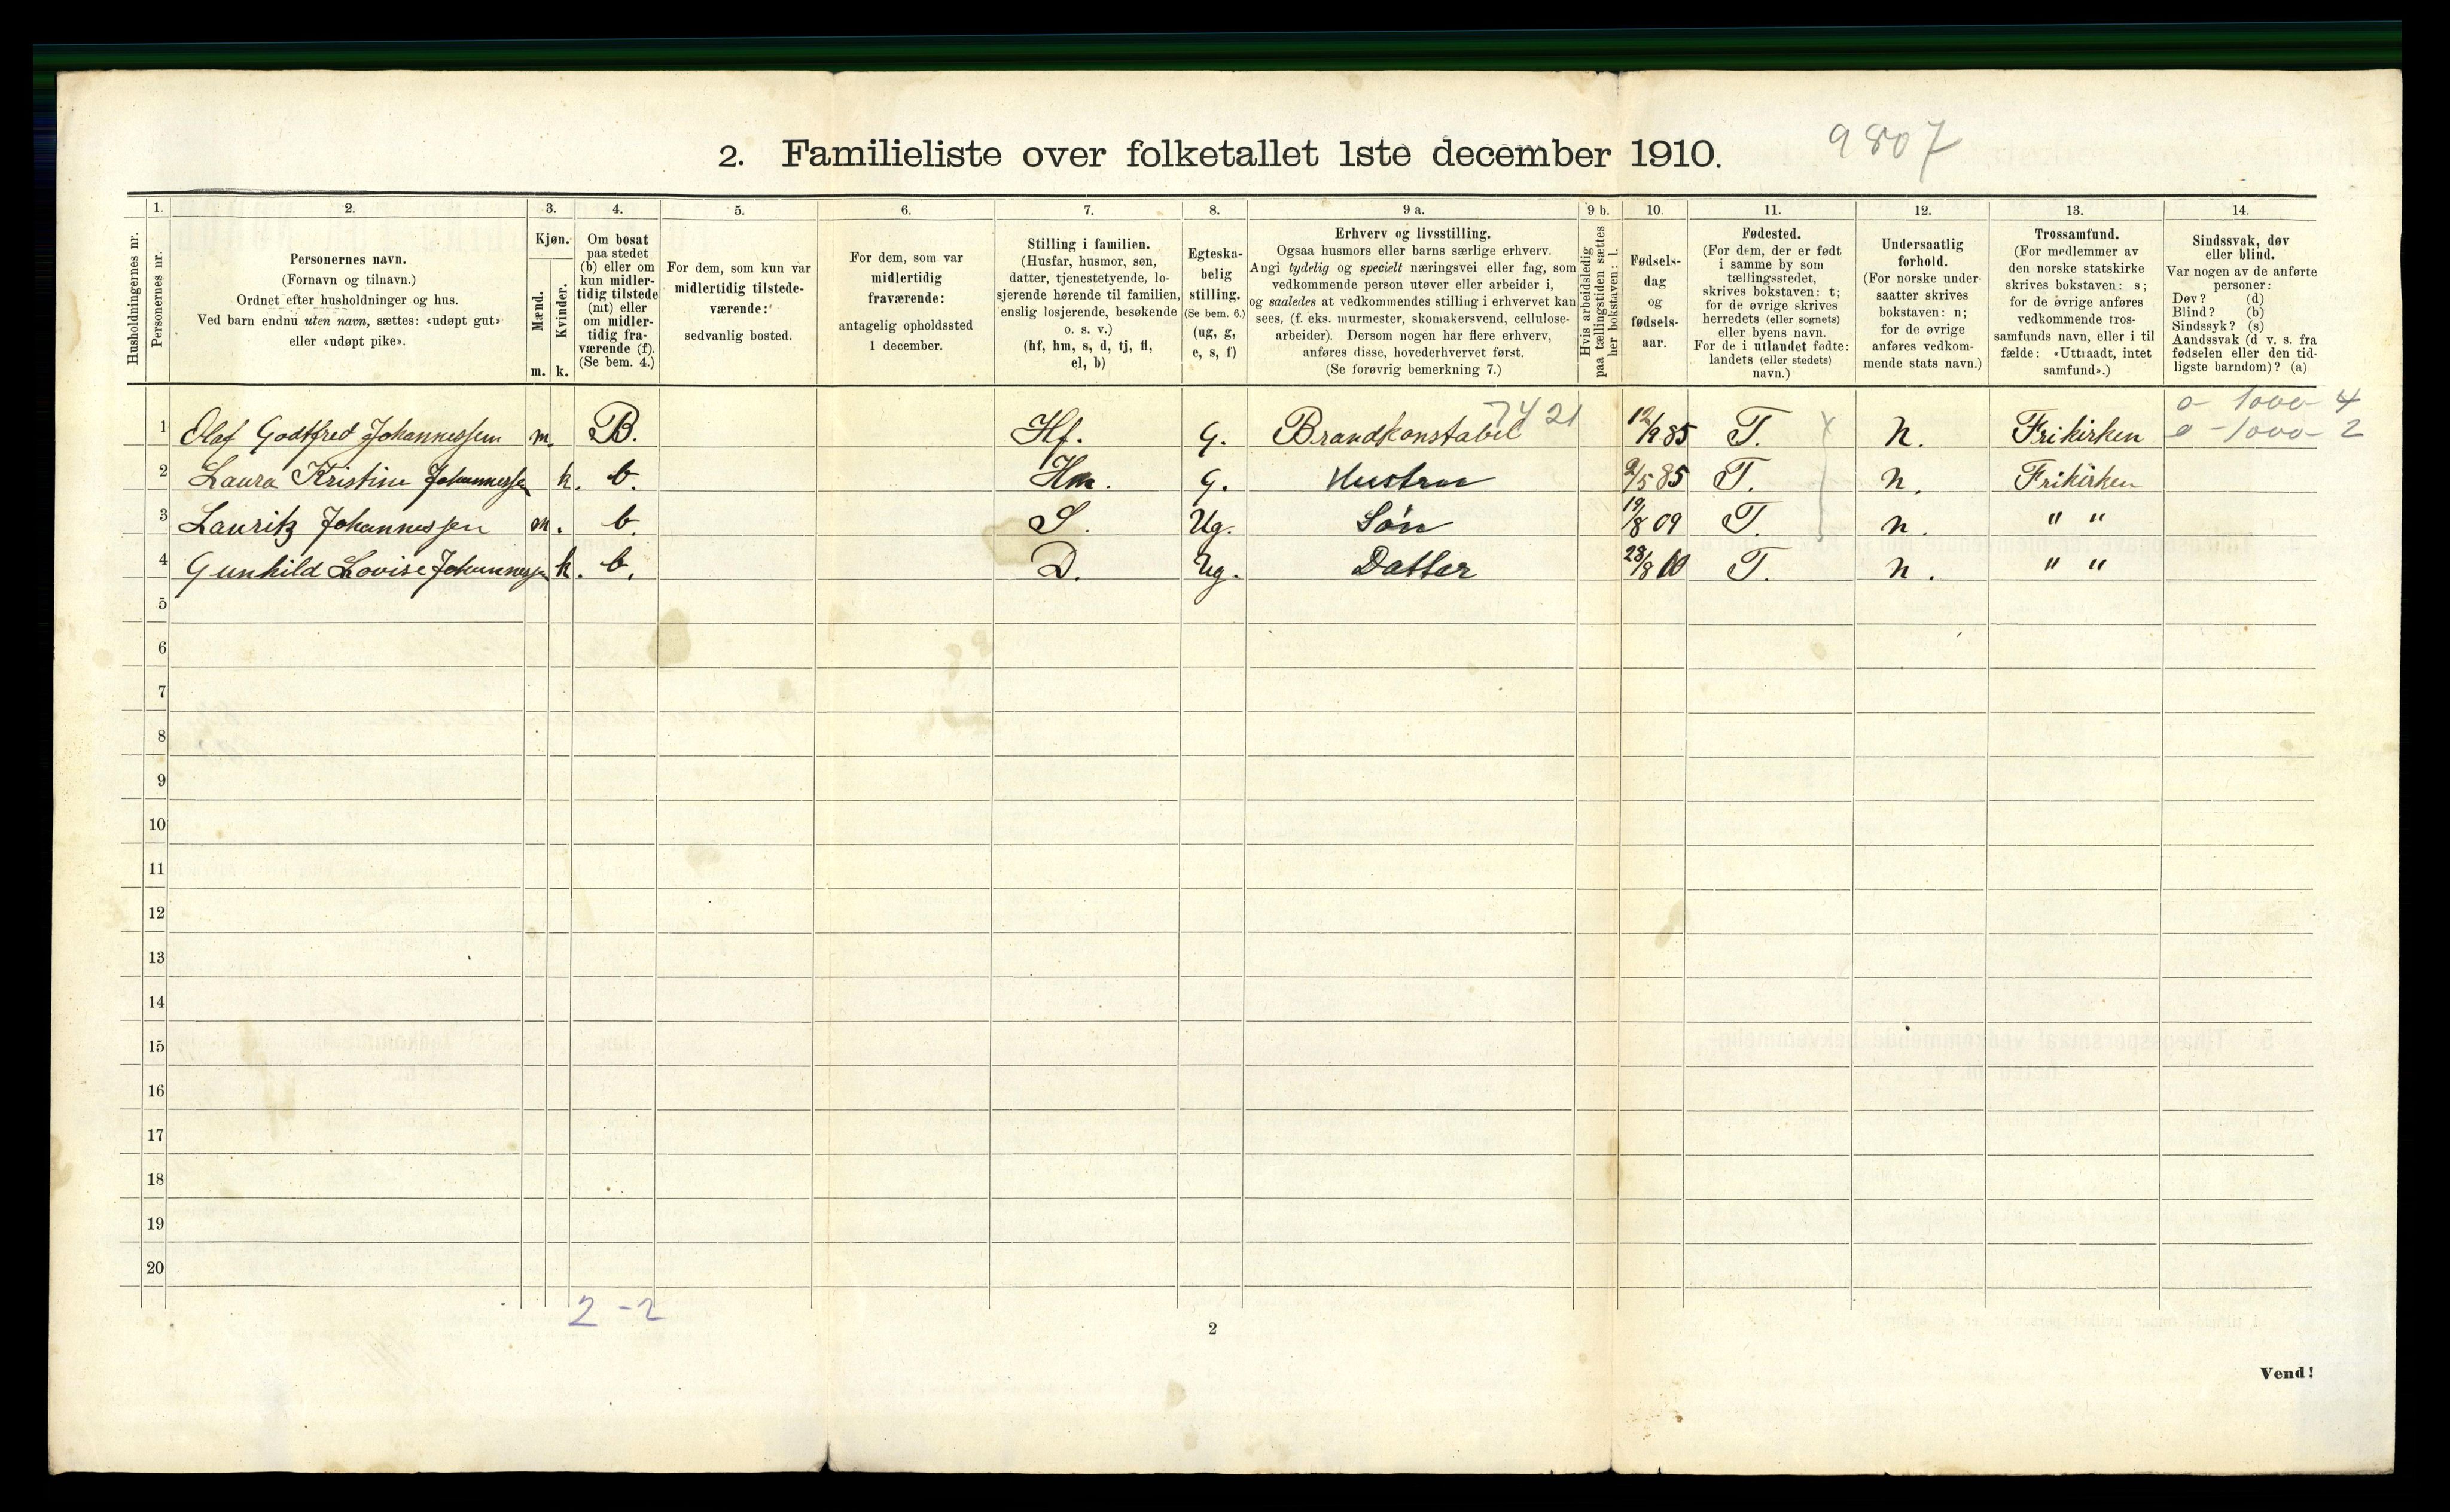 2. Familieliste over folketallet 1ste december 1910. 9807
Husholdningernes nr.
1.
Personernes nr.
2.
Personernes navn.
(Fornavn og tilnavn.)
Ordnet efter husholdninger og hus.
Ved barn endnu uten navn, sættes: «udøpt gut»
eller «udøpt pike».
3.
Kjøn.
Mænd.
m.
Kvinder.
k.
4.
Om bosat
paa stedet
(b) eller om
kun midler-
tidig tilstede
(mt) eller
om midler-
tidig fra-
værende (f).
(Se bem. 4.)
5.
For dem, som kun var
midlertidig tilstede-
værende:
sedvanlig bosted.
6.
For dem, som var
midlertidig
fraværende:
antagelig opholdssted
1 december.
7.
Stilling i familien.
(Husfar, husmor, søn,
datter, tjenestetyende, lo-
sjerende hørende til familien,
enslig losjerende, besøkende
o. s. v.)
(hf, hm, s, d, tj, fl,
el, b)
8.
Egteska-
belig
stilling.
(Se bem. 6.)
(ug, g,
e, s, f)
9 a.
Erhverv og livsstilling.
Ogsaa husmors eller barns særlige erhverv.
Angi tydelig og specielt næringsvei eller fag, som
vedkommende person utøver eller arbeider i,
og saaledes at vedkommendes stilling i erhvervet kan
sees, (f. eks. murmester, skomakersvend, cellulose-
arbeider). Dersom nogen har flere erhverv,
anføres disse, hovederhvervet først.
(Se forøvrig bemerkning 7.)
9 b.
Hvis arbeidsledig
paa tællingstiden sættes
her bokstaven: l.
10.
Fødsels-
dag
og
fødsels-
aar.
11.
Fødested.
(For dem, der er født
i samme by som
tællingsstedet,
skrives bokstaven: t;
for de øvrige skrives
herredets (eller sognets)
eller byens navn.
For de i utlandet fødte:
landets (eller stedets)
navn.)
12.
Undersaatlig
forhold.
(For norske under-
saatter skrives
bokstaven: n;
for de øvrige
anføres vedkom-
mende stats navn.)
13.
Trossamfund.
(For medlemmer av
den norske statskirke
skrives bokstaven: s;
for de øvrige anføres
vedkommende tros-
samfunds navn, eller i til
fælde: «Uttraadt, intet
samfund».)
14.
Sindssvak, døv
eller blind.
Var nogen av de anførte
personer:
Døv? (d)
Blind? (b)
Sindssyk? (s)
Aandssvak (d v. s. fra
fødselen eller den tid-
ligste barndom)? (a)
7421 0- 1000- 4
1 Olaf Godtfred Johannessen m. B. Hf. G. Brandkonstabel 12/9 85 T. n. Frikirken 0-1000-2
2 Laura Kristine Johannessen k. b. Hm. G. Hustru 2/5 85 T. n. Frikirken
3 Lauritz Johannessen m. b. S. Ug. Søn 19/8 09 T. n. " "
4 Gunhild Lovise Johannessen k. b. D. Ug. Datter 28/8 10 T. n. " "
5
6
7
8
9
10
11
12
13
14
15
16
17
18
19
20
2 - 2
2
Vend!